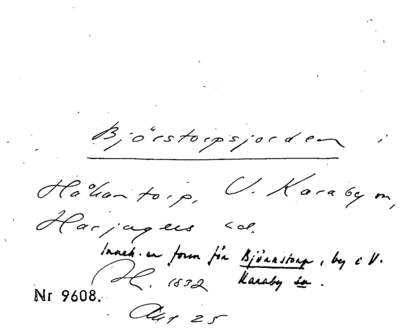 Björstorpsjorden i
Håkantorp, V. Karaby sn,
Harjagers hd.
Inneh. en form för Björnstorp, by i V.
Karaby sn.
1832
Nr 9608.
Akt 25